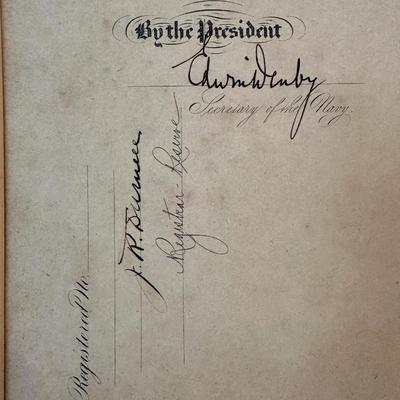 By the President
Edwin Denby
Secretary of the Navy.
Registered No.
J. R.
Registrar - Reserve